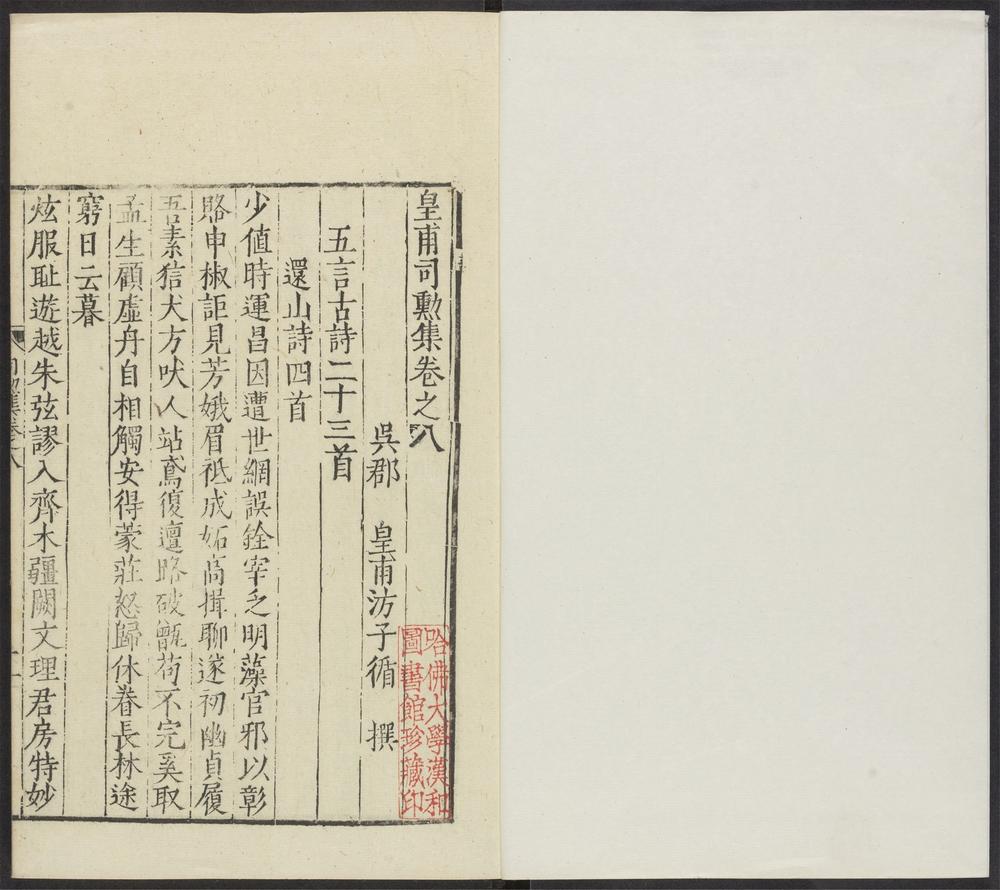 皇甫司勲集卷之八
吳郡 皇甫汸子循 撰
五言古詩二十三首
還山詩四首
少值時運昌因遭世網誤銓宰乏明藻官邪以彰
賂申椒詎見芳娥眉祗成妬高揖聊遂初幽貞履
吾素狺犬方吠人站鳶復邅路破甑苟不完奚取
孟生顧虛舟自相觸安得蒙莊怒歸休眷長林途
窮日云暮
炫服耻遊越朱弦謬入齊木疆闕文理君房特妙
哈佛大學漢和
圖書館珍藏印